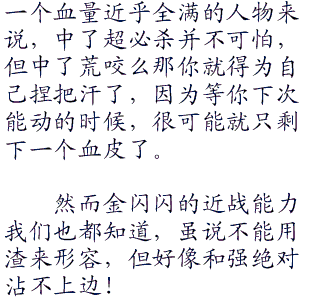 一个血量近乎全满的人物来
说，中了超必杀并不可怕，
但中了荒咬么那你就得为自
己捏把汗了，因为等你下次
能动的时候，很可能就只剩
下一个血皮了。
然而金闪闪的近战能力
我们也都知道，虽说不能用
渣来形容，但好像和强绝对
沾不上边！